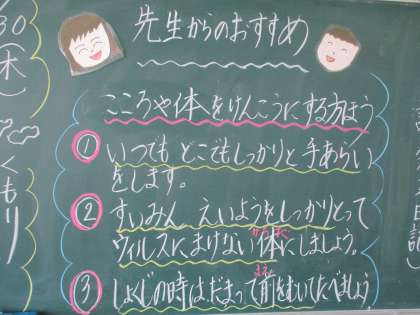 30
(木)
くもり
先生からのおすすめ
こころや体をけんこうにする方ほう
① いつでも どこでもしっかりと 手あらい
をします。
② すいみん えいようをしっかりとって
ウィルスにまけない体にしましょう。
③ しょくじの時は、だまって前をむいてたべましょう
日記)